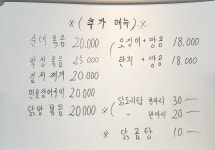 ※ (추가 메뉴) ※
순대 볶음 20.000
곽창볶음 25.000
김치찌개 20.000
민물장어구이 20.000
닭발 볶음 20.000
오징어 + 땅콩 18.000
한치 + 땅콩 18.000
닭도리탕 한마리 30 —
〃 반마리 20 —
※ 닭곰탕 10 —